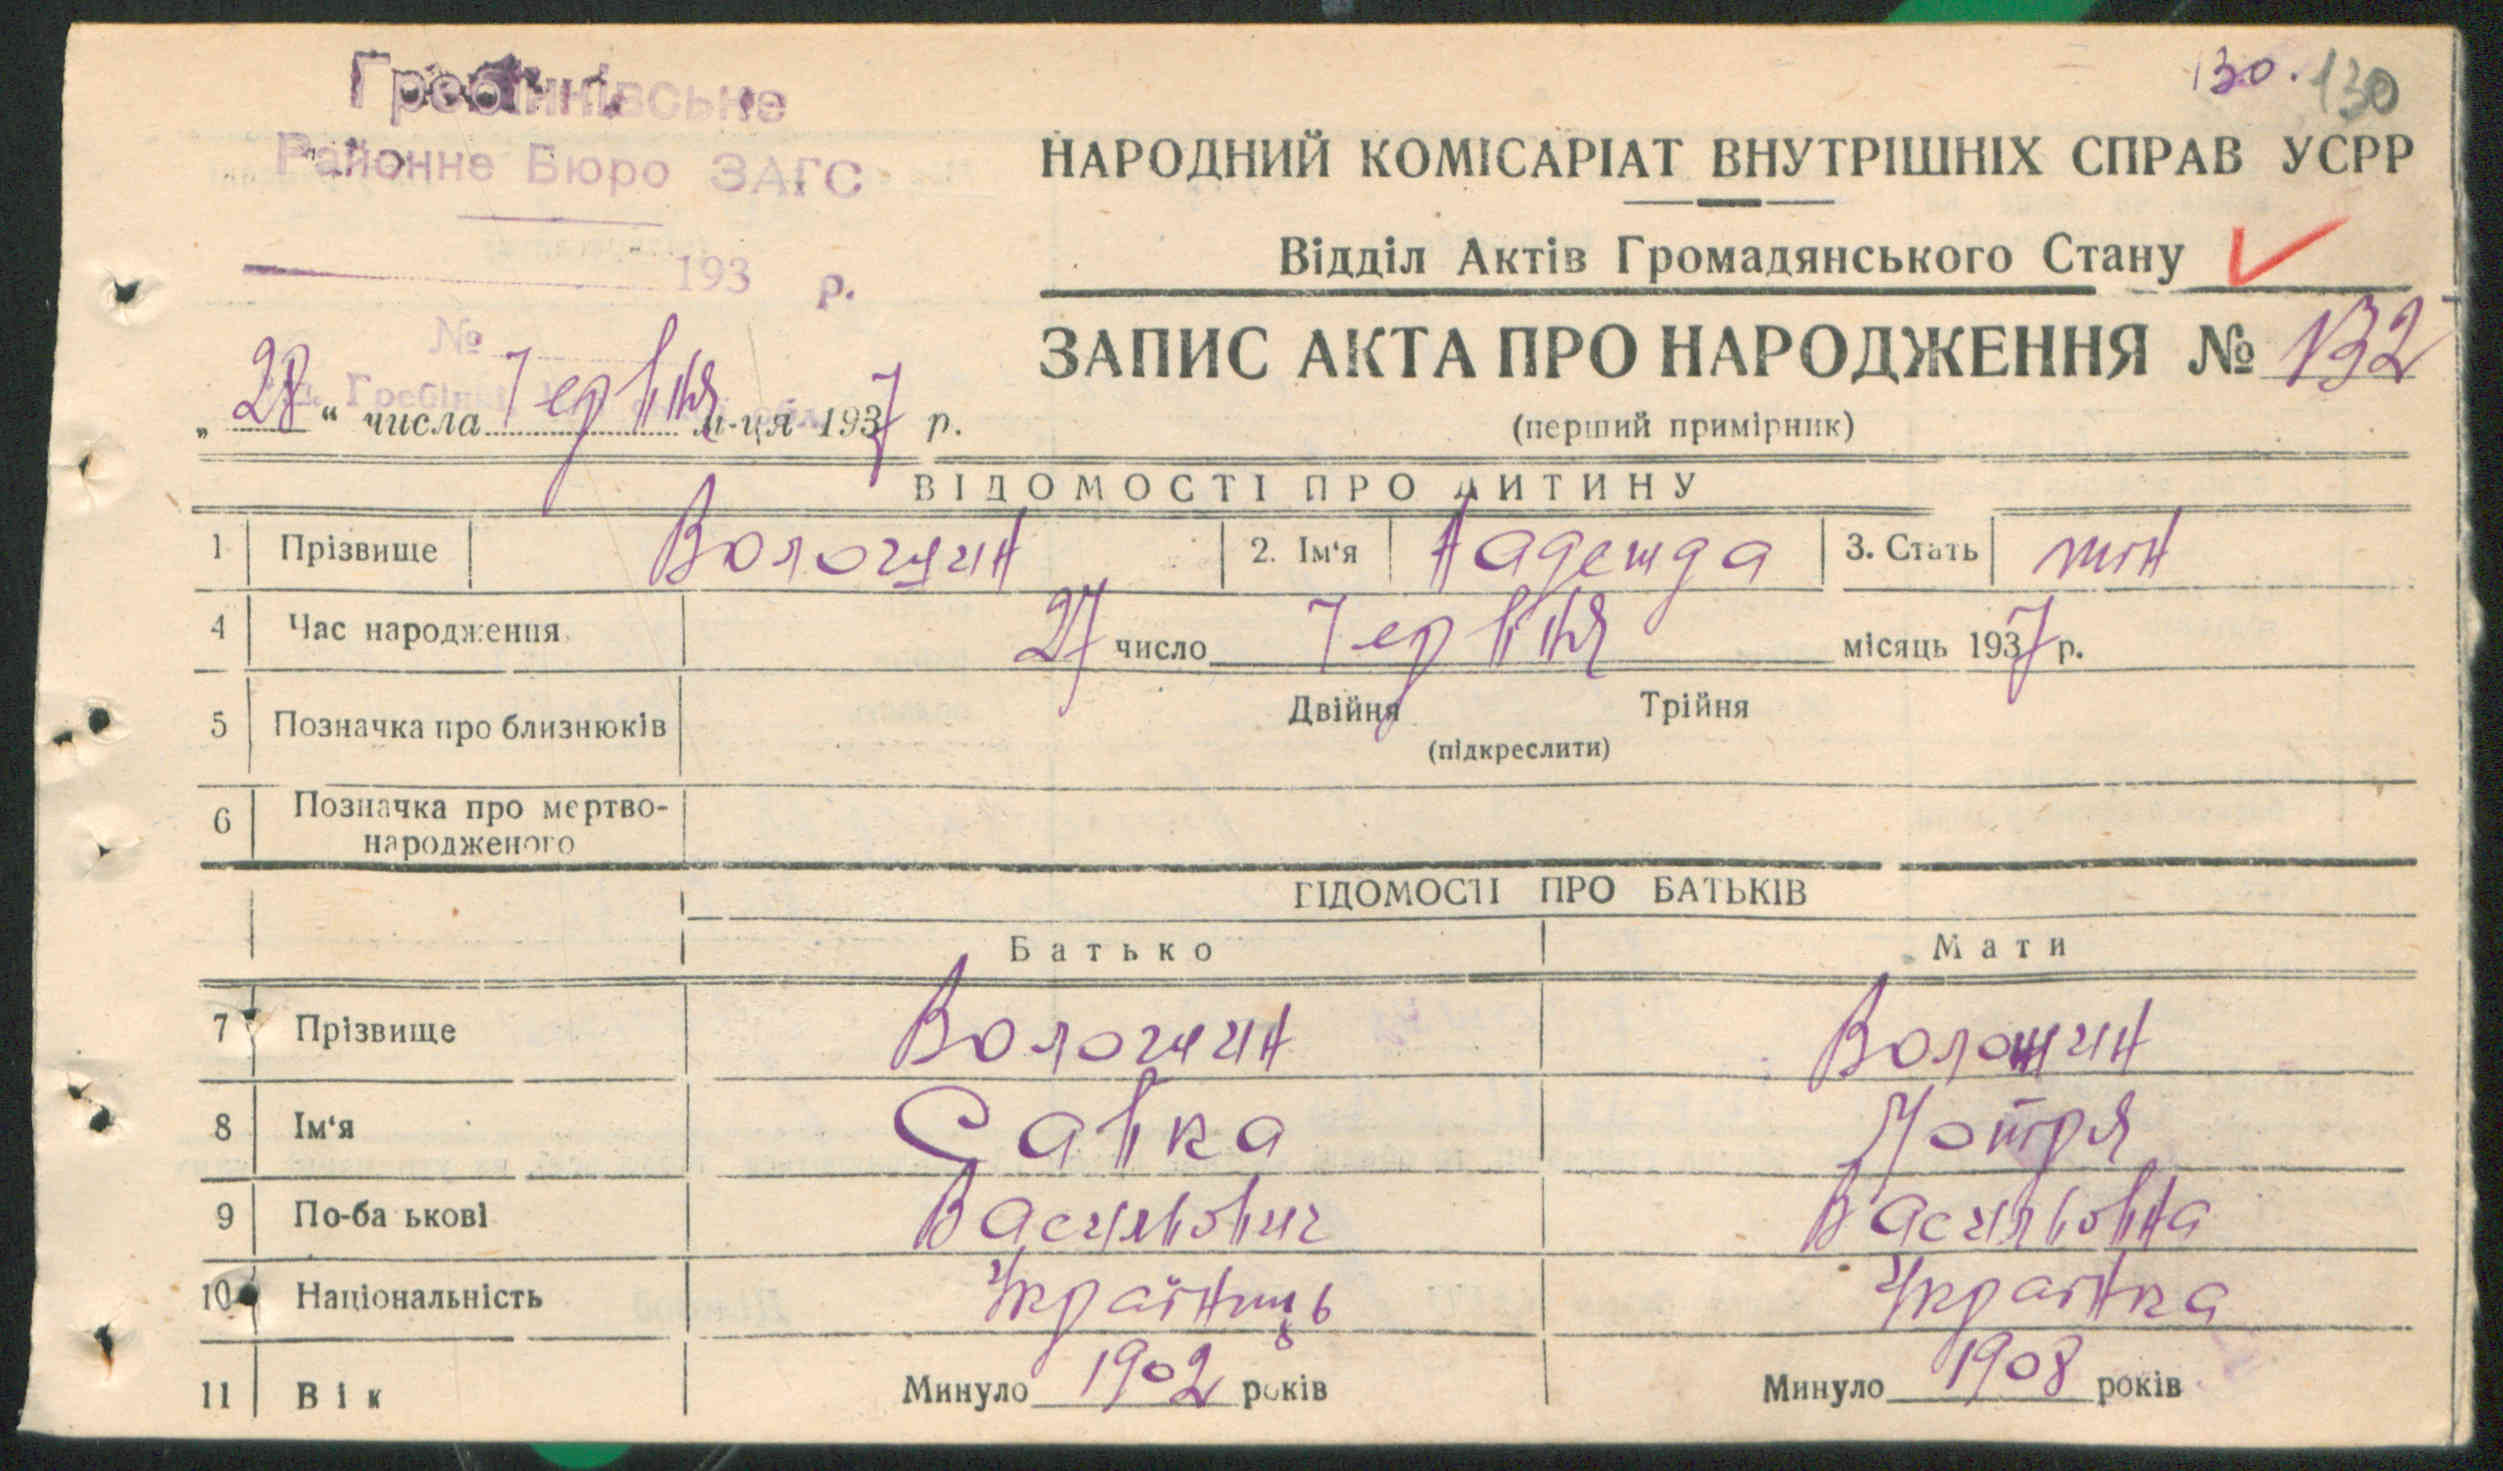 130. 130
Гребінківське
Районне Бюро ЗАГС
193 р.
№
НАРОДНИЙ КОМІСАРІАТ ВНУТРІШНІХ СПРАВ УСРР
Відділ Актів Громадянського Стану
ЗАПИС АКТА ПРО НАРОДЖЕННЯ № 132
(перший примірник)
„ 28 “ числа Червня м-ця 1937 р.
ВІДОМОСТІ ПРО ДИТИНУ
1 Прізвище Волощин 2. Ім‘я Надежда 3. Стать жін
4 Час народження 27 число Червня місяць 1937 р.
5 Позначка про близнюків Двійня Трійня
(підкреслити)
6 Позначка про мертво-
народженого
ВІДОМОСТІ ПРО БАТЬКІВ
Батько Мати
7 Прізвище Волощин Волощин
8 Ім‘я Савка Мотря
9 По-ба ькові Васильович Васильовна
10 Національність Українець Українка
11 Вік Минуло 1902 років Минуло 1908 років